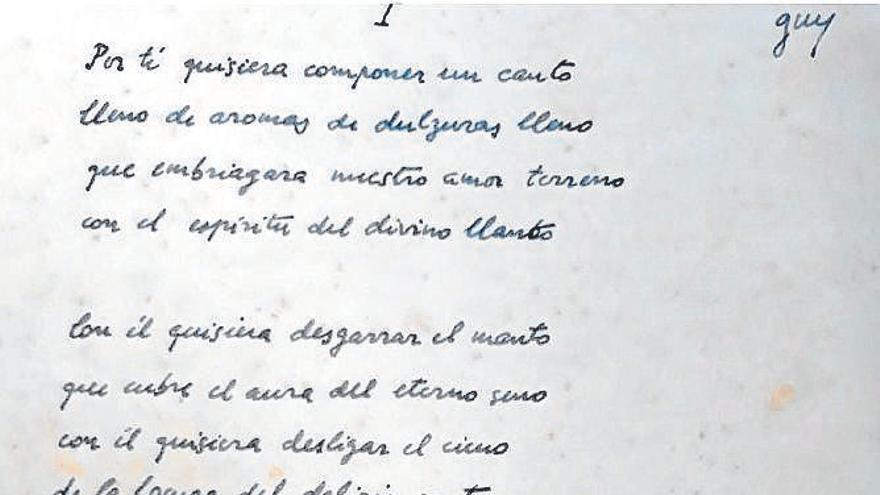 I
guy
Por ti quisiera componer un canto
lleno de aromas de dulzuras lleno
que embriagara nuestro amor terreno
con el espíritu del divino llanto
Con él quisiera desgarrar el manto
que cubre el aura del eterno seno
con él quisiera desligar el cieno
de la del